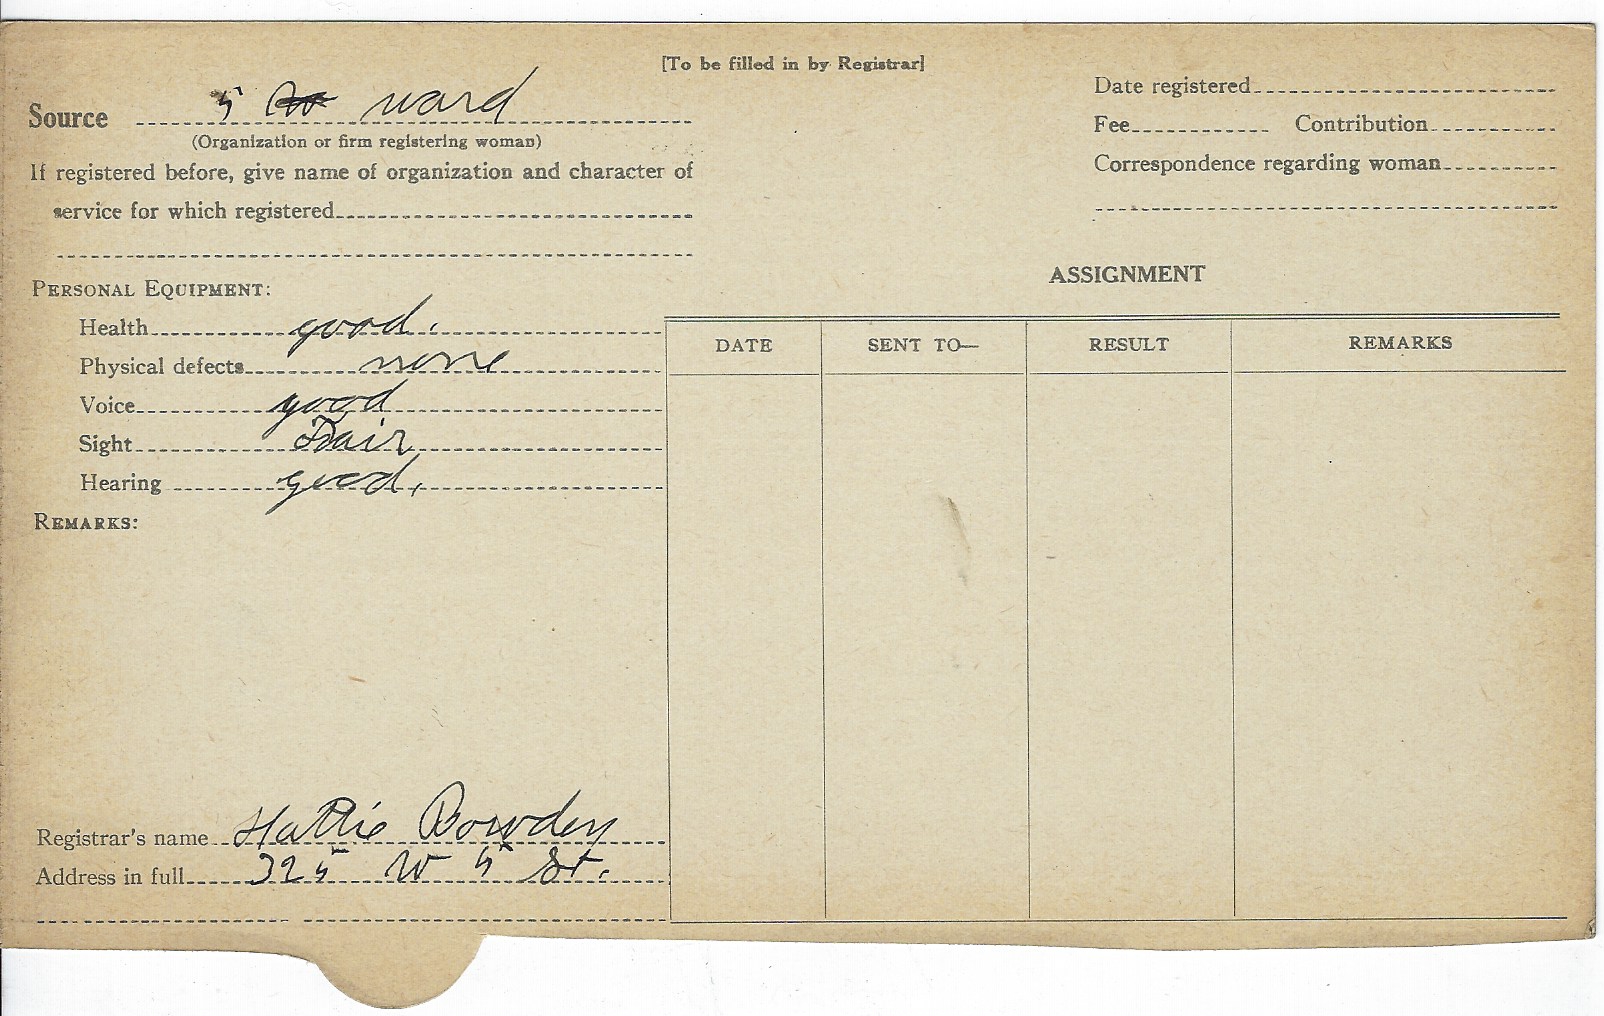 [To be filled in by Registrar]
Source 5 ward
(Organization or firm registering woman)
If registered before, give name of organization and character of
service for which registered
Date registered
Fee Contribution
Correspondence regarding woman
PERSONAL EQUIPMENT:
Health good.
Physical defects none
Voice good
Sight Fair
Hearing good.
REMARKS:
Registrar's name Hattie Bowden
Address in full 325 W 5 St.
ASSIGNMENT
DATE SENT TO— RESULT REMARKS